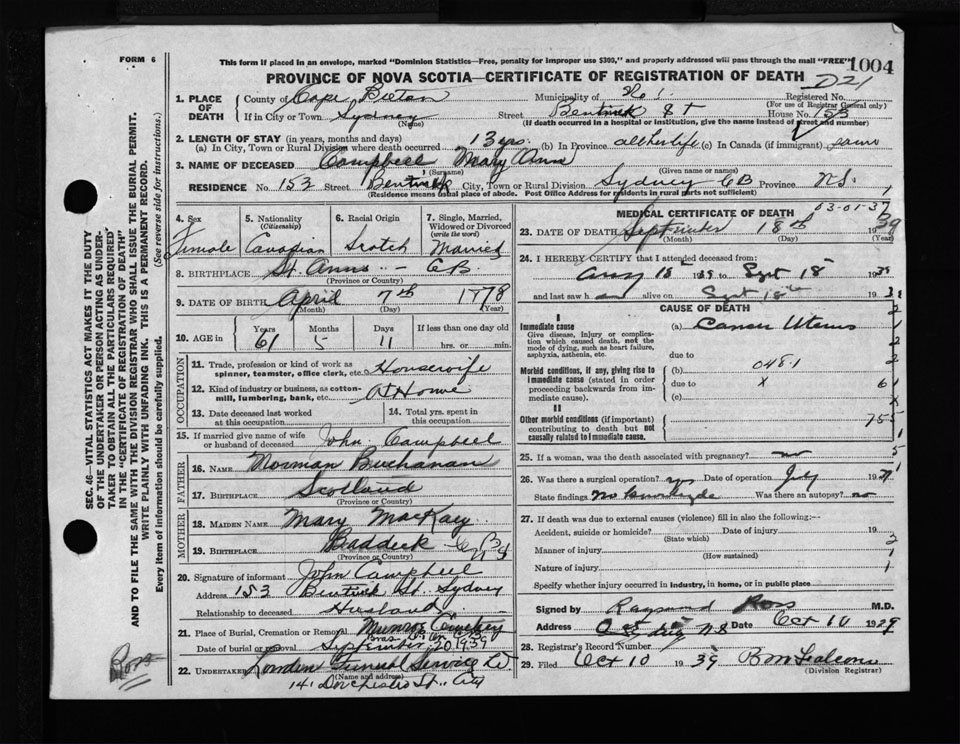 FORM 6
This form if placed in an envelope, marked "Dominion Statistics—Free, penalty for improper use $300," and properly addressed will pass through the mail "FREE"
1004
PROVINCE OF NOVA SCOTIA—CERTIFICATE OF REGISTRATION OF DEATH
D21
1. PLACE OF DEATH
County of Cape Breton Municipality of No 1. Registered No.
(For use of Registrar General only)
If in City or Town Sydney Street Bentinck St House No. 153
(Name) (If death occurred in a hospital or institution, give the name instead of street and number)
2. LENGTH OF STAY (in years, months and days)
(a) In City, Town or Rural Division where death occurred 13 yrs. (b) In Province all her life (c) In Canada (if immigrant) same
3. NAME OF DECEASED Campbell Mary Ann
(Surname) (Given name or names)
RESIDENCE No. 153 Street Bentinck City, Town or Rural Division Sydney CB Province N.S.
(Residence means usual place of abode. Post Office Address for residents in rural parts not sufficient)
4. Sex Female
5. Nationality (Citizenship) Canadian
6. Racial Origin Scotch
7. Single, Married, Widowed or Divorced (write the word) Married
8. BIRTHPLACE St. Anns - CB.
(Province or Country)
9. DATE OF BIRTH April 7th 1878
(Month) (Day) (Year)
10. AGE in Years 61 Months 5 Days 11 If less than one day old hrs. or min.
OCCUPATION
11. Trade, profession or kind of work as spinner, teamster, office clerk, etc. Housewife
12. Kind of industry or business, as cotton-mill, lumbering, bank, etc. At Home
13. Date deceased last worked at this occupation
14. Total yrs. spent in this occupation
15. If married give name of wife or husband of deceased John Campbell
FATHER
16. NAME Norman Buchanan
17. BIRTHPLACE Scotland
MOTHER
18. MAIDEN NAME Mary MacKay
19. BIRTHPLACE Baddeck
(Province or Country)
20. Signature of informant John Campbell
Address 153 Bentinck St. Sydney
Relationship to deceased Husband
21. Place of Burial, Cremation or Removal Munroe Cemetery
Date of burial or removal September 20 1939
22. UNDERTAKER Londen Funeral Service
(Name and address)
141 Dorchester St., City
MEDICAL CERTIFICATE OF DEATH
03-01-37
23. DATE OF DEATH September 18th 1939
(Month) (Day) (Year)
24. I HEREBY CERTIFY that I attended deceased from:
Aug 15 1939 to Sept 18 1939
and last saw h alive on Sept 18th 193
CAUSE OF DEATH
I
Immediate cause
Give disease, injury or complication which caused death, not the mode of dying, such as heart failure, asphyxia, asthenia, etc.
(a) Cancer Uterus
due to
Morbid conditions, if any, giving rise to immediate cause (stated in order proceeding backwards from immediate cause).
(b) 048.1
due to X
(c)
II
Other morbid conditions (if important) contributing to death but not causally related to immediate cause.
755
25. If a woman, was the death associated with pregnancy? no
26. Was there a surgical operation? yes Date of operation July 19
State findings no knowledge Was there an autopsy? no
27. If death was due to external causes (violence) fill in also the following:—
Accident, suicide or homicide? Date of injury 19
(State which)
Manner of injury
(How sustained)
Nature of injury
Specify whether injury occurred in industry, in home, or in public place
Signed by Raymond Ross M.D.
Address Date Oct 10 1939
28. Registrar's Record Number
29. Filed Oct 10 1939
(Division Registrar)
SEC. 46—VITAL STATISTICS ACT MAKES IT THE DUTY OF THE UNDERTAKER OR PERSON ACTING AS UNDERTAKER TO OBTAIN ALL THE PARTICULARS REQUIRED IN THE "CERTIFICATE OF REGISTRATION OF DEATH" AND TO FILE THE SAME WITH THE DIVISION REGISTRAR WHO SHALL ISSUE THE BURIAL PERMIT.
WRITE PLAINLY WITH UNFADING INK. THIS IS A PERMANENT RECORD.
Every item of information should be carefully supplied. (See reverse side for instructions.)